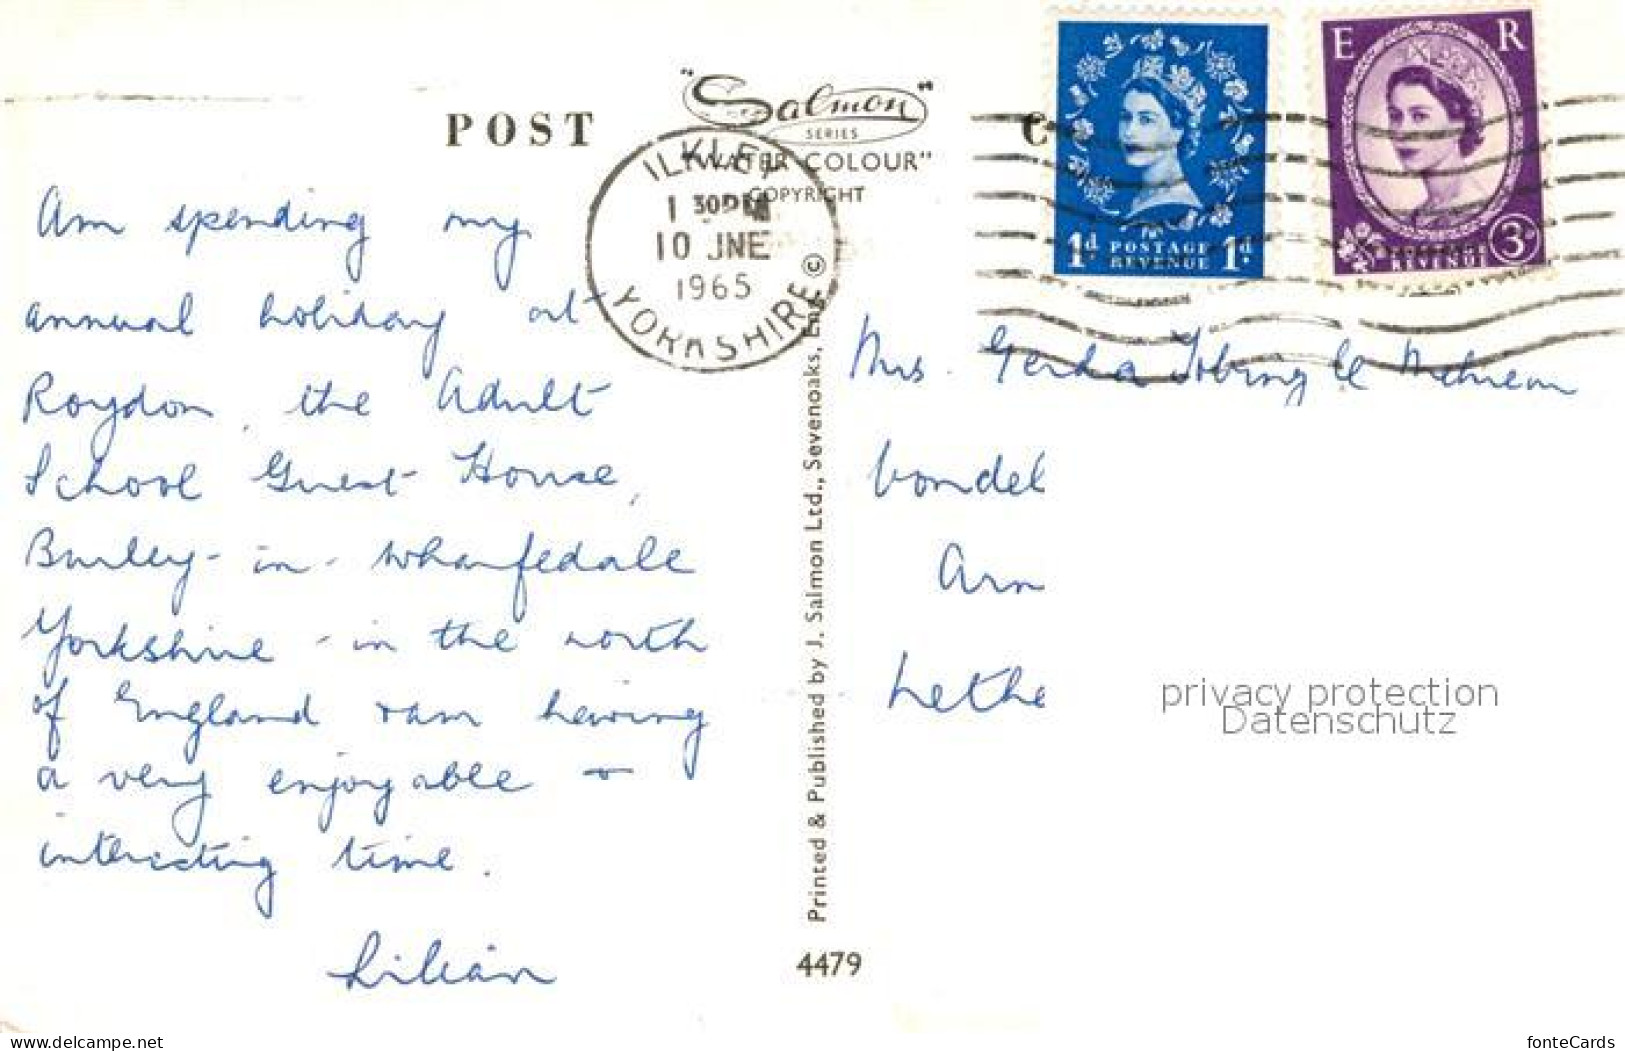 "Salmon"
SERIES
POST C
"WATER COLOUR"
COPYRIGHT
ILKLEY
1 30PM
10 JNE
1965
YORKSHIRE
1d POSTAGE 1d
REVENUE
E R
REVENUE 3d
Am spending my
annual holiday at
Roydon, the Adult
School Guest House,
Burley-in-Wharfedale
Yorkshire - in the north
of England & am having
a very enjoyable &
interesting time.
Lilian
Printed & Published by J. Salmon Ltd., Sevenoaks, Eng. ©
4479
Mrs. Gerda
Vondel
Arn
Lethe
privacy protection
Datenschutz
www.delcampe.net
fonteCards